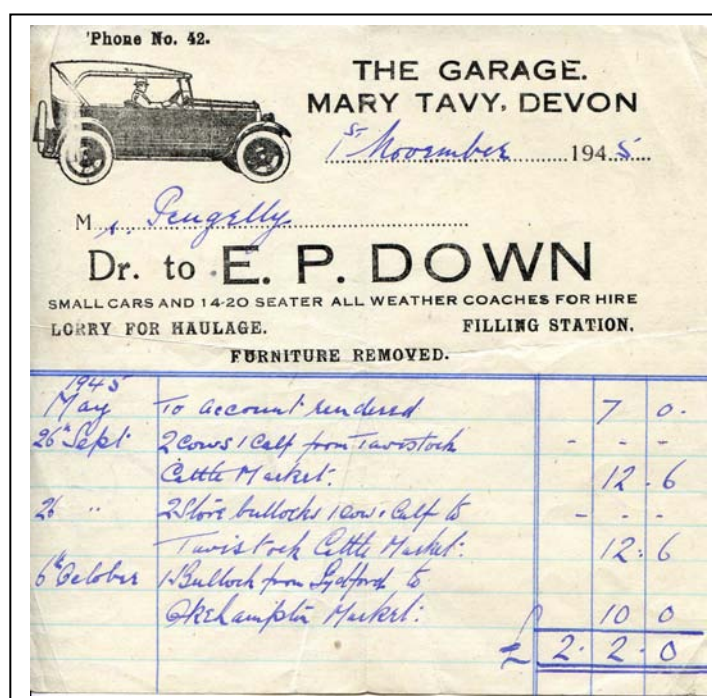 'Phone No. 42.
THE GARAGE.
MARY TAVY, DEVON
1st November 1945
Mr. Pengelly
Dr. to E. P. DOWN
SMALL CARS AND 14-20 SEATER ALL WEATHER COACHES FOR HIRE
LORRY FOR HAULAGE. FILLING STATION.
FURNITURE REMOVED.
1945
May To account rendered 7 0.
26th Sept 2 Cows 1 Calf from Tavistock - - -
Cattle Market. 12. 6
26 " 2 Store bullocks 1 Cow & Calf to - - -
Tavistock Cattle Market: 12: 6
6th October 1 Bullock from Lydford to
Okehampton Market: 10 0
£ 2. 2. 0